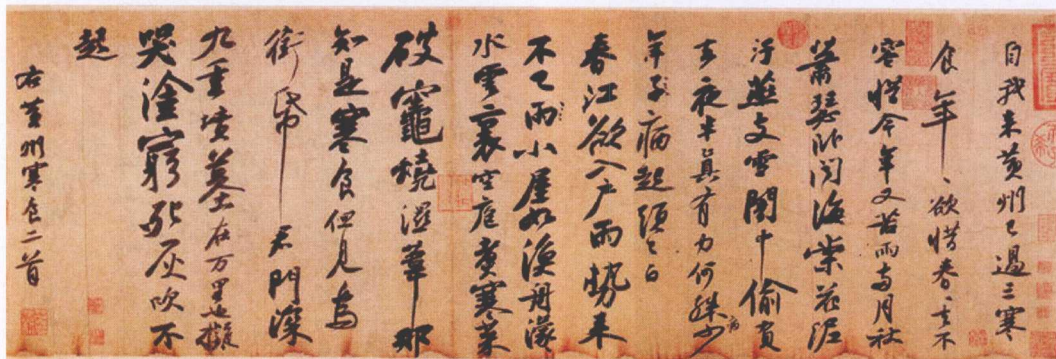 自我來黃州已過三寒
食年〻欲惜春〻去不
容惜今年又苦雨兩月秋
蕭瑟卧聞海棠花泥
汙燕支雪闇中偷負
去夜半真有力何殊病少
年子病起須已白
春江欲入户雨勢來
不已雨小屋如漁舟濛〻
水雲裏空庖煮寒菜
破竈燒濕葦那
知是寒食但見烏
銜帋君門深
九重墳墓在万里也擬
哭塗窮死灰吹不
起
右黃州寒食二首